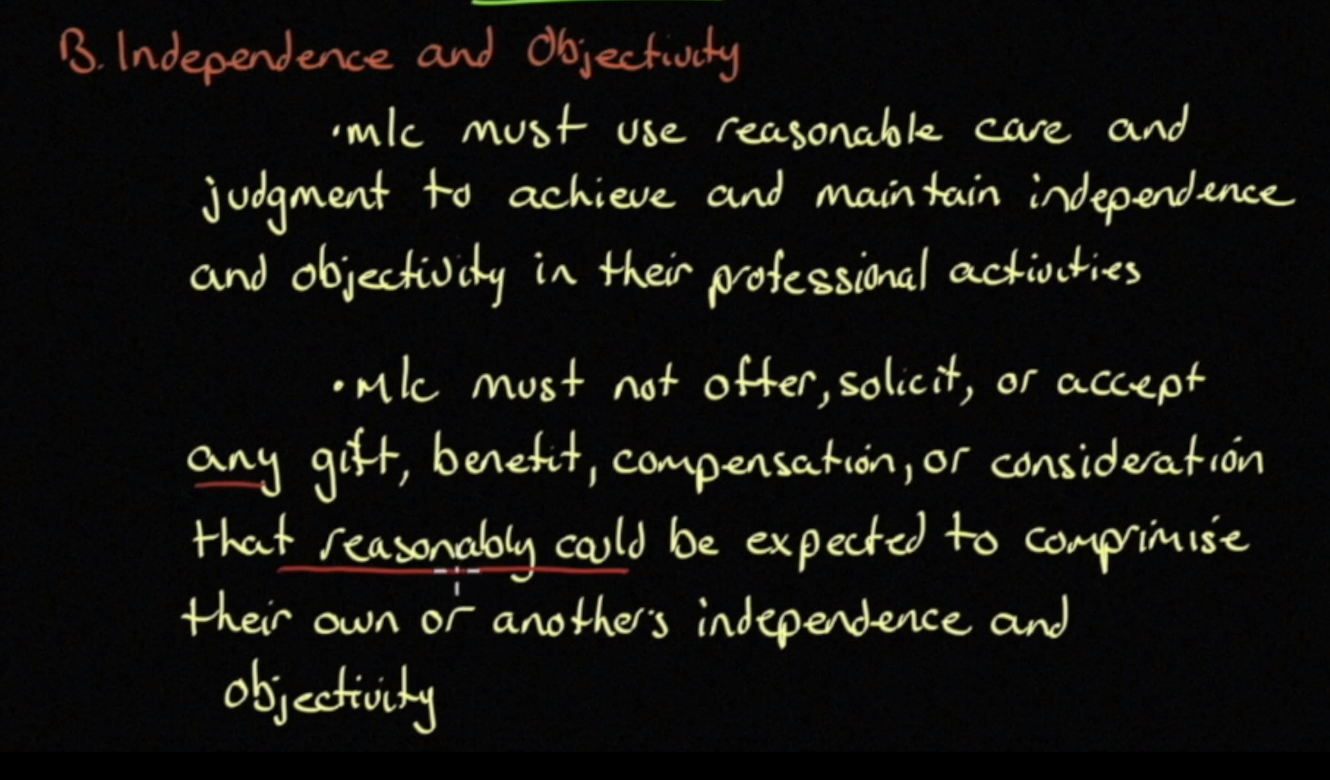 B. Independence and Objectivity
•m/c must use reasonable care and
judgment to achieve and maintain independence
and objectivity in their professional activities
•M/c must not offer, solicit, or accept
any gift, benefit, compensation, or consideration
that reasonably could be expected to comprimise
their own or another's independence and
objectivity